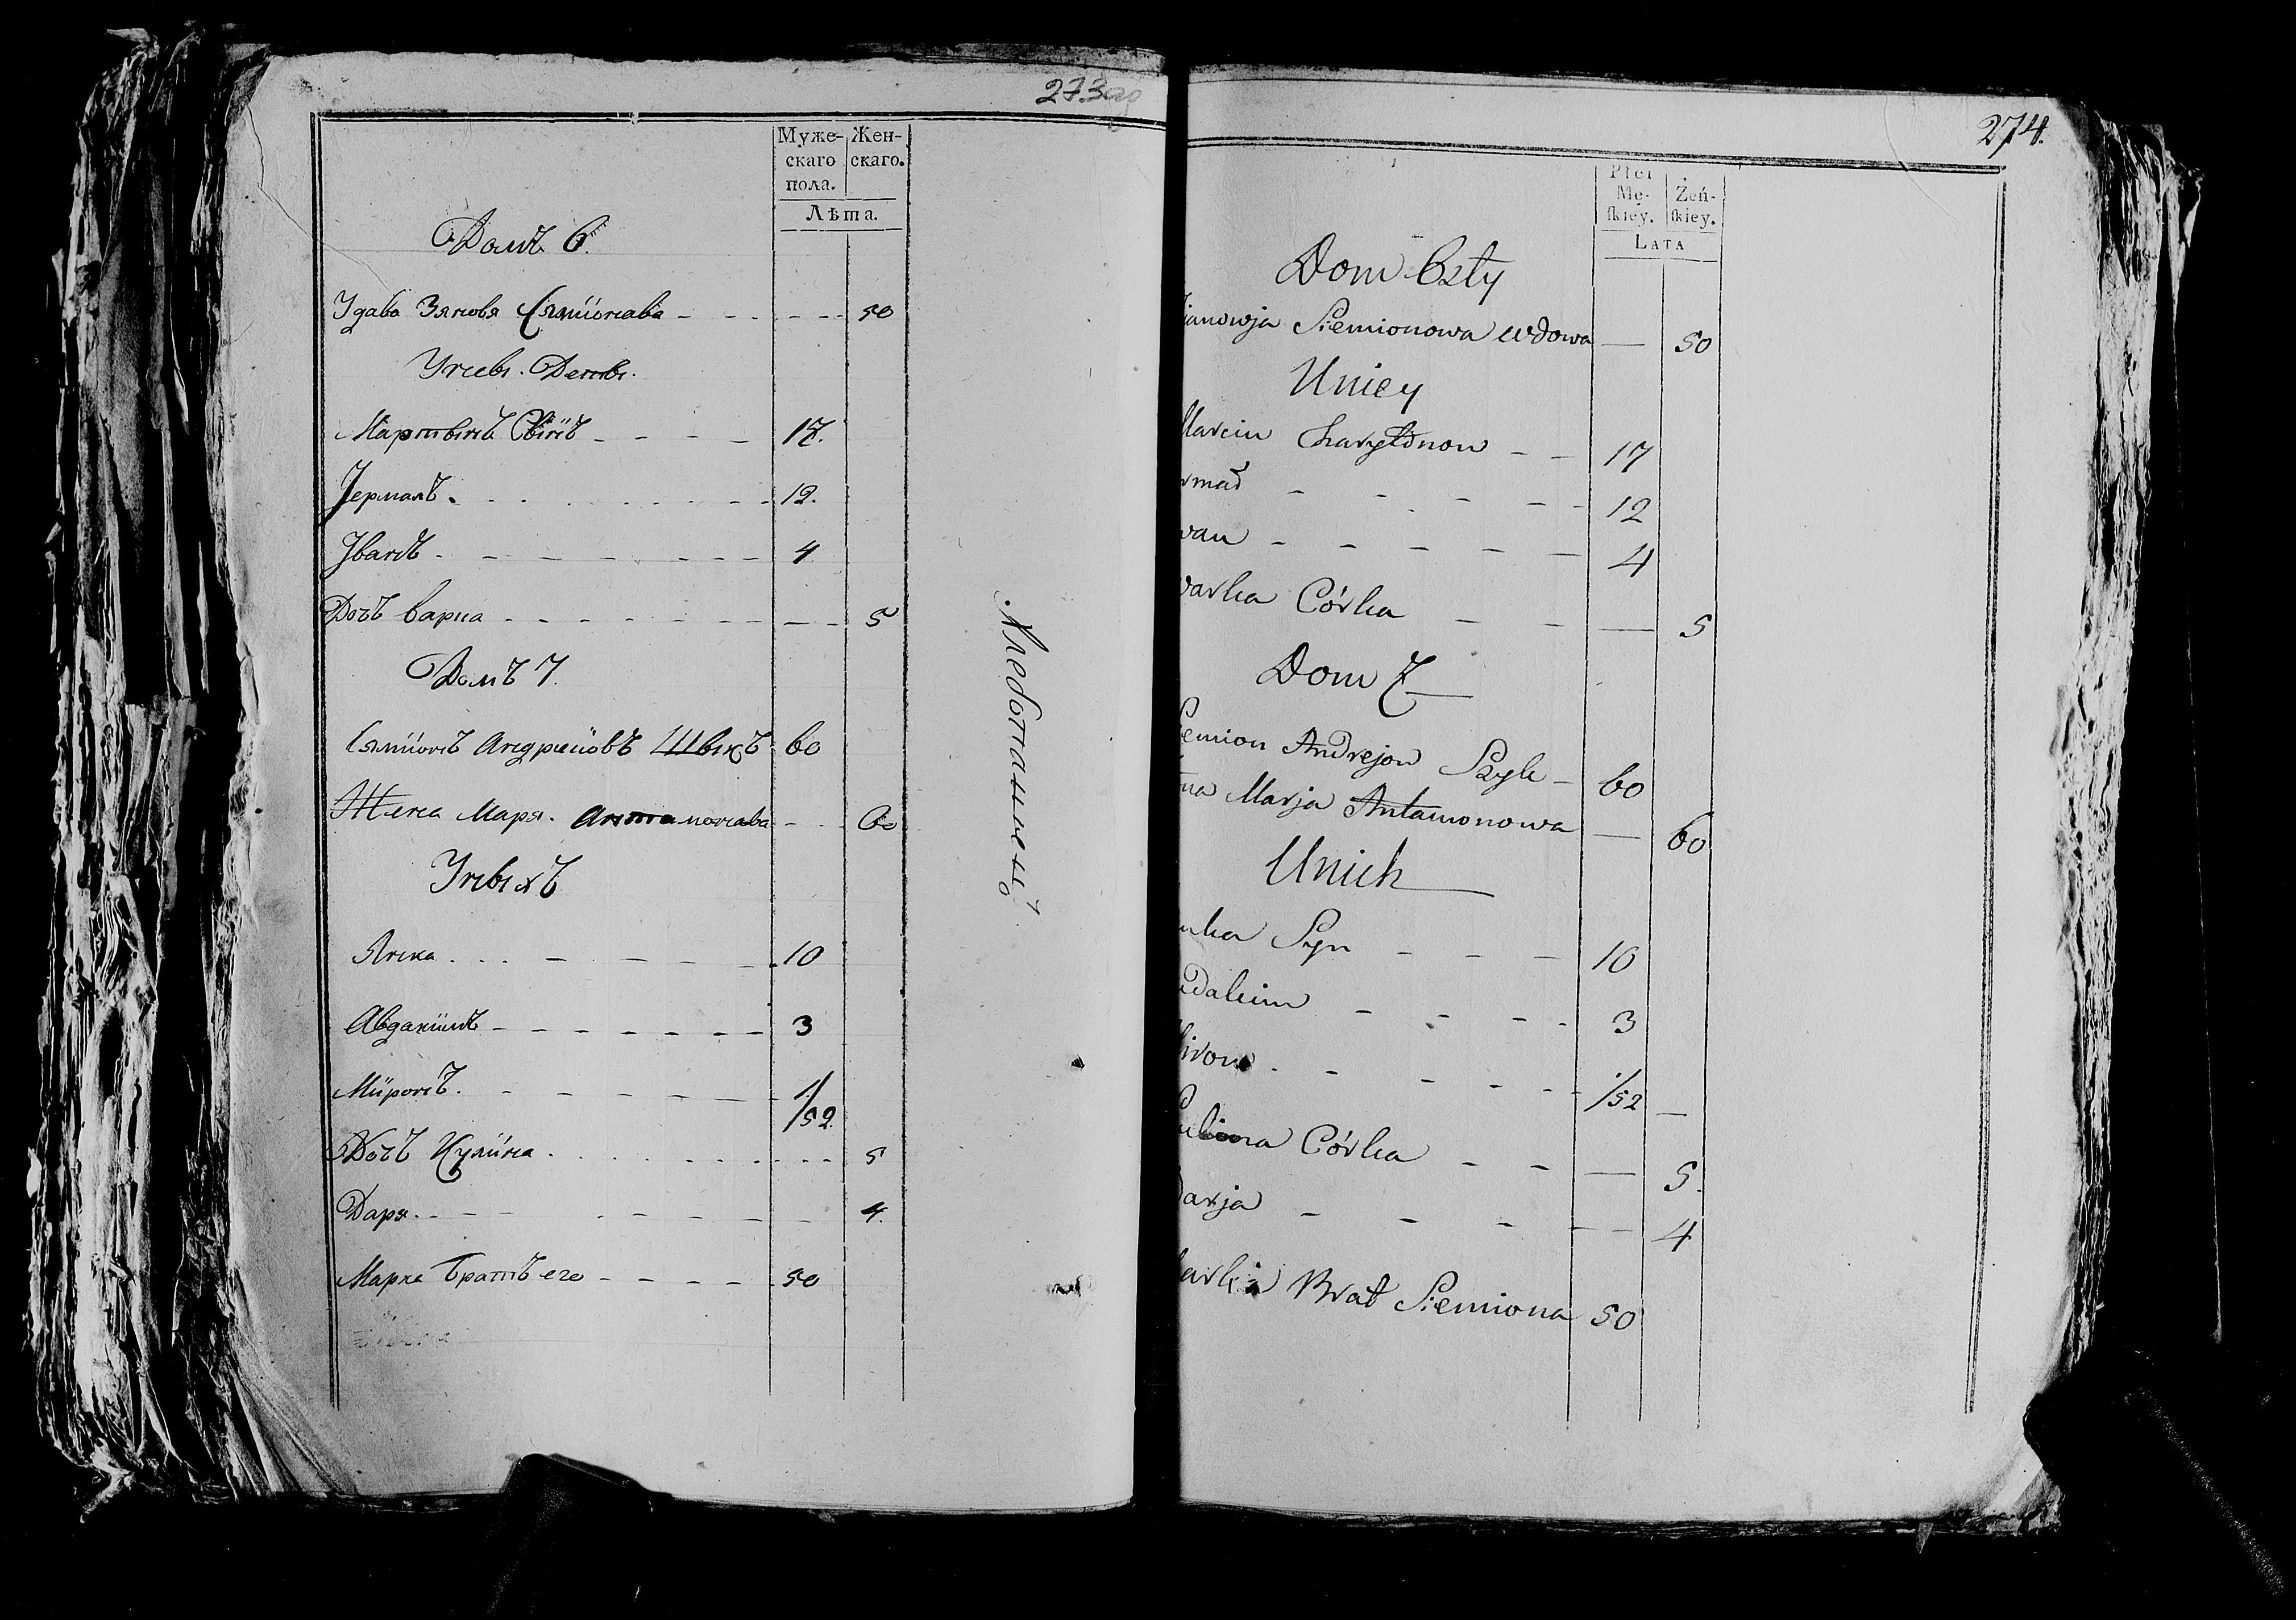 273об
Муже- Жен-
скаго скаго.
пола.
Лѣта.
Домъ 6.
Удава Зяновя Сямiонава 50
Унеы. Детвы.
Мартынъ 17.
Јермалъ 12.
Јванъ 4
Дочъ варка 5
Домъ 7.
Сямiонъ Андрыiовъ Шыкъ 60
Жена Маря. Антамонава 60
Уныхъ
Янка 10
Авдакiимъ 3
Мiронъ. 1/52.
Дочъ Кулiна 5
Даря. 4.
Марка братъ его 50
274.
Płci
Mę- Żeń-
skiey. skiey.
LATA
Dom 6sty
ianowja Siemionowa wdowa 50
Uniey
Marcin 17
rmał 12
wan 4
warka Córka 5
Dom 7
iemion Andrejow Szyk 60
na Marja Antamonowa 60
Unich
nka Syn 10
wdakim 3
iron 1/52
ulina Córka 5.
Darja 4
arka Brat Siemiona 50